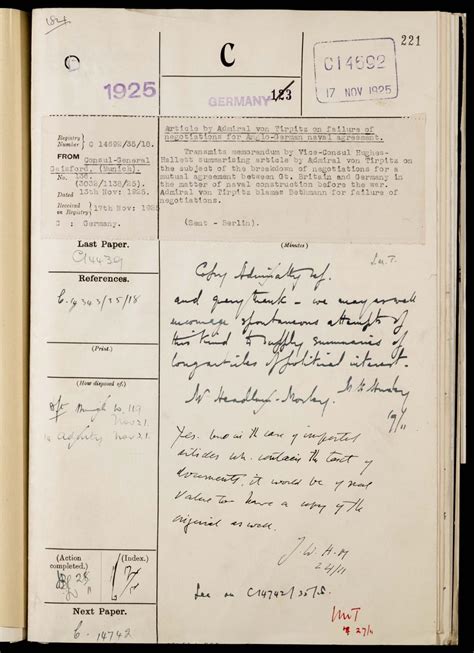 221
C
1925
GERMANY
123
C14692
17 NOV 1925
Registry Number } C 14692/35/18.
FROM Consul-General Gaisford, (Munich).
No. 136. (3032/1138/25).
Dated 13th Nov: 1925.
Received in Registry } 17th Nov: 1925
C : Germany.
Article by Admiral von Tirpitz on failure of
negotiations for Anglo-German naval agreement.
Transmits memorandum by Vice-Consul Hughes-
Hallett summarising article by Admiral von Tirpitz on
the subject of the breakdown of negotiations for a
mutual agreement between Gt. Britain and Germany in
the matter of naval construction before the war.
Admiral von Tirpitz blames Bethmann for failure of
negotiations.
(Sent - Berlin).
Last Paper.
C14439
References.
(Print.)
(How disposed of.)
Nov 21.
Nov 21.
(Action completed.)
(Index.)
Next Paper.
C. 14742
(Minutes)
Copy Admiralty ref.
and query thank - we may as well
encourage spontaneous attempts of
this kind to supply summaries of
long articles of political interest.
Mr Headlam-Morley.
19/11
Yes. but in the case of important
articles wh. contain the text of
documents, it would be of real
value to have a copy of the
original as well.
J W H-M
24/11
See on C14742/35/18.
27/11